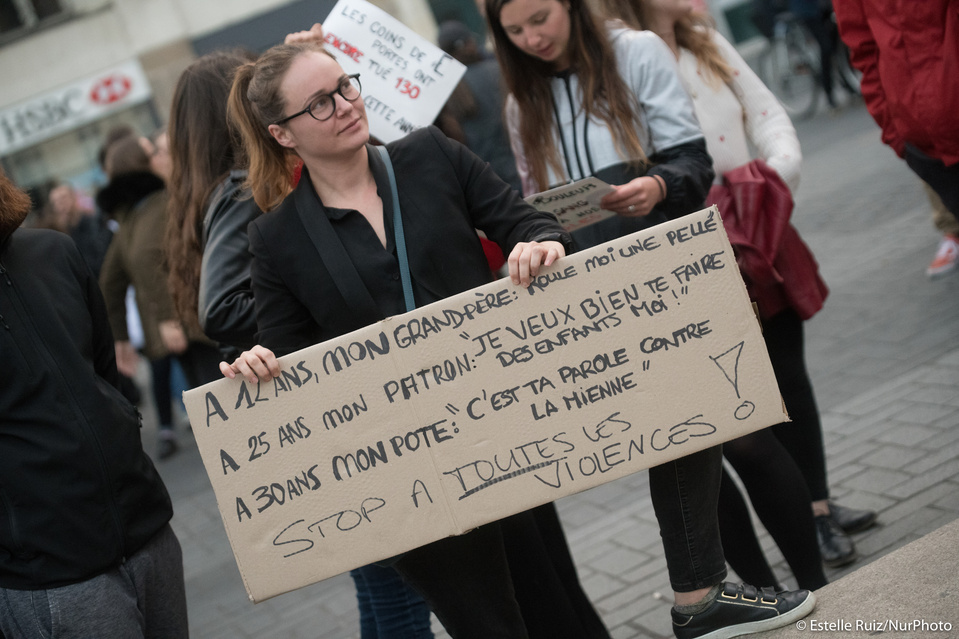 HSBC
LES COINS DE
PORTES ONT
ENCORE TUÉ 130
CETTE ANN
A 12 ANS, MON GRAND-PÈRE: ROULE MOI UNE PELLE
A 25 ANS MON PATRON: "JE VEUX BIEN TE FAIRE
DES ENFANTS MOI!"
A 30 ANS MON POTE: "C'EST TA PAROLE CONTRE
LA MIENNE"
STOP A TOUTES LES
VIOLENCES !
© Estelle Ruiz/NurPhoto